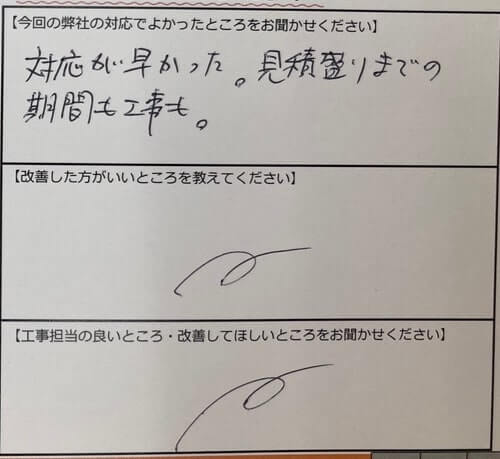 【今回の弊社の対応でよかったところをお聞かせください】
対応が早かった。見積盛りまでの
期間も工事も。
【改善した方がいいところを教えてください】
【工事担当の良いところ・改善してほしいところをお聞かせください】